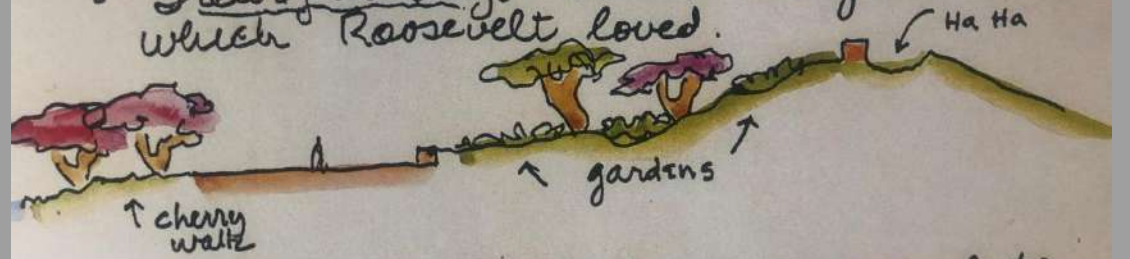 which Roosevelt loved.
Ha Ha
gardens
cherry
walk